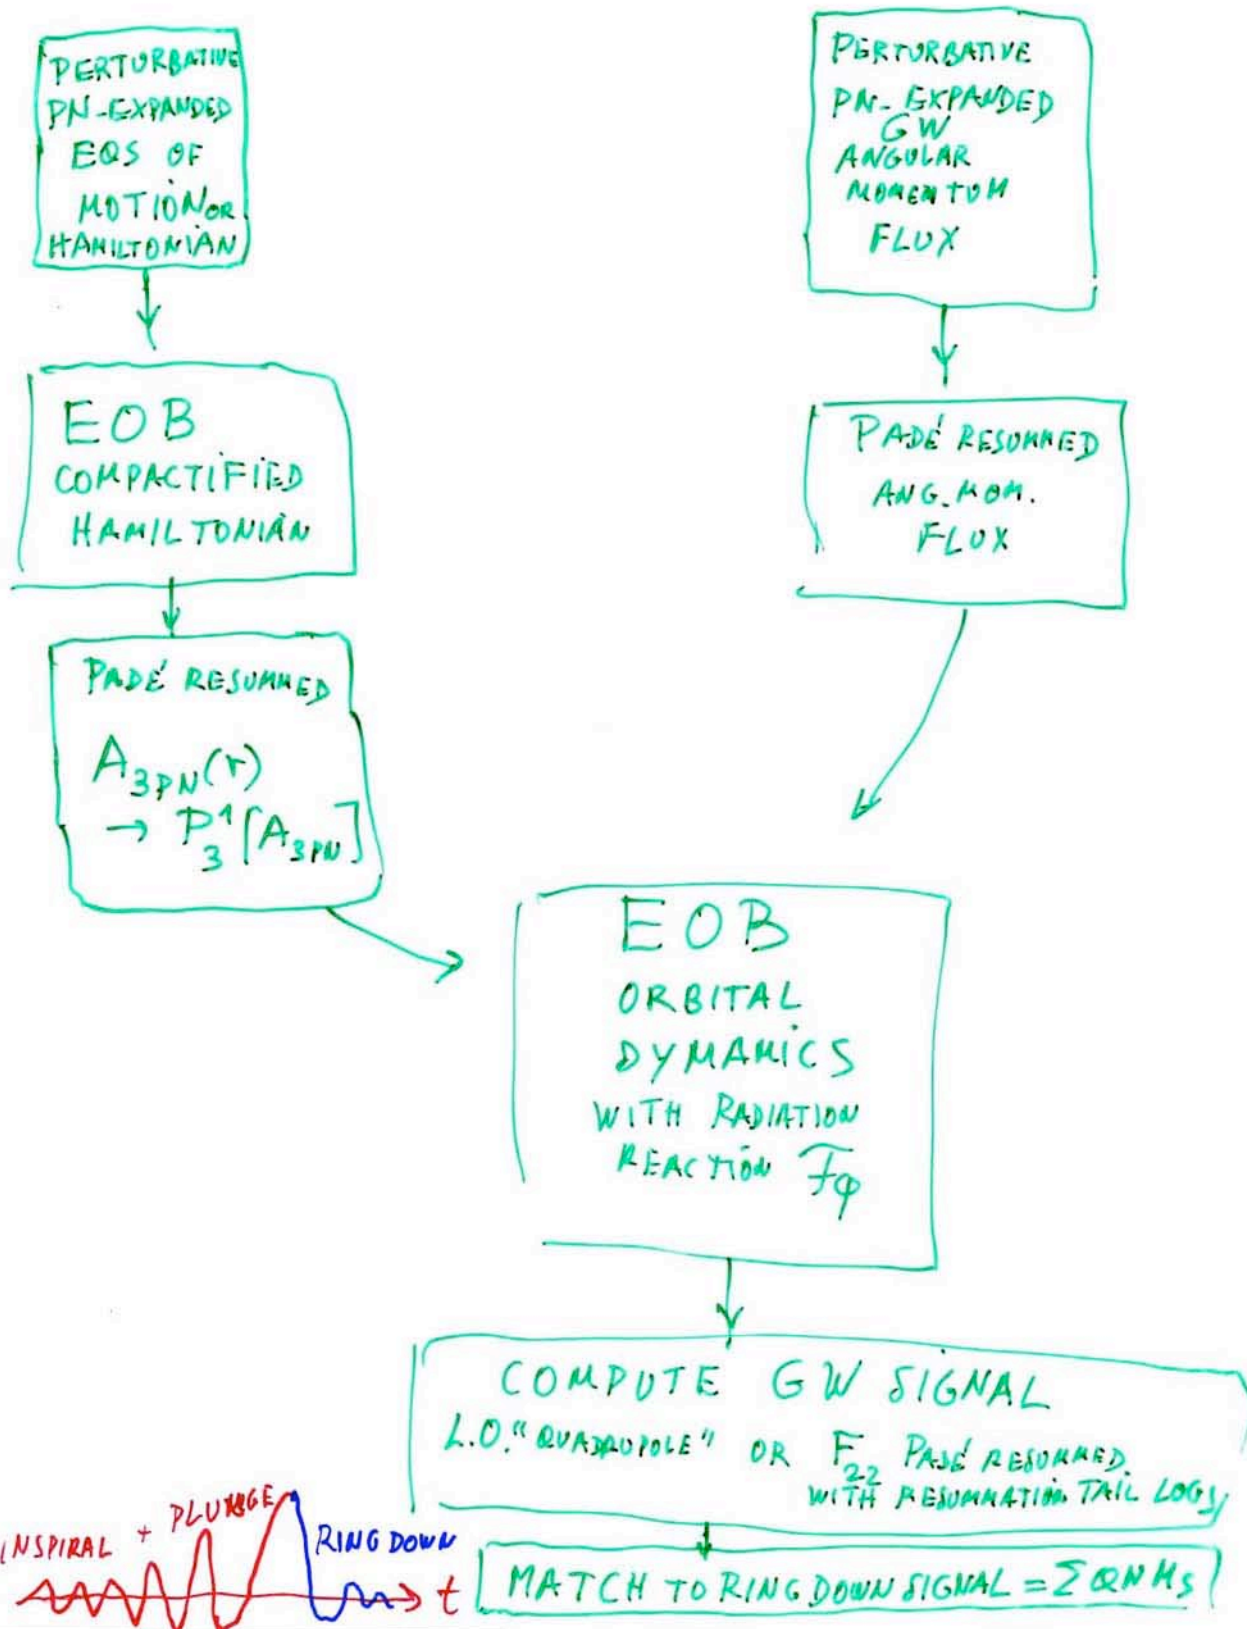 PERTURBATIVE
PN-EXPANDED
EQS OF
MOTION OR
HAMILTONIAN
EOB
COMPACTIFIED
HAMILTONIAN
PADÉ RESUMMED
A_{3PN}(r)
→ P^1_3[A_{3PN}]
PERTURBATIVE
PN-EXPANDED
GW
ANGULAR
MOMENTUM
FLUX
PADÉ RESUMMED
ANG. MOM.
FLUX
EOB
ORBITAL
DYNAMICS
WITH RADIATION
REACTION F_φ
COMPUTE GW SIGNAL
L.O. "QUADRUPOLE" OR F_{22} PADÉ RESUMMED
WITH RESUMMATION TAIL LOGS
MATCH TO RING DOWN SIGNAL = Σ QNMs
INSPIRAL + PLUNGE
RING DOWN
t